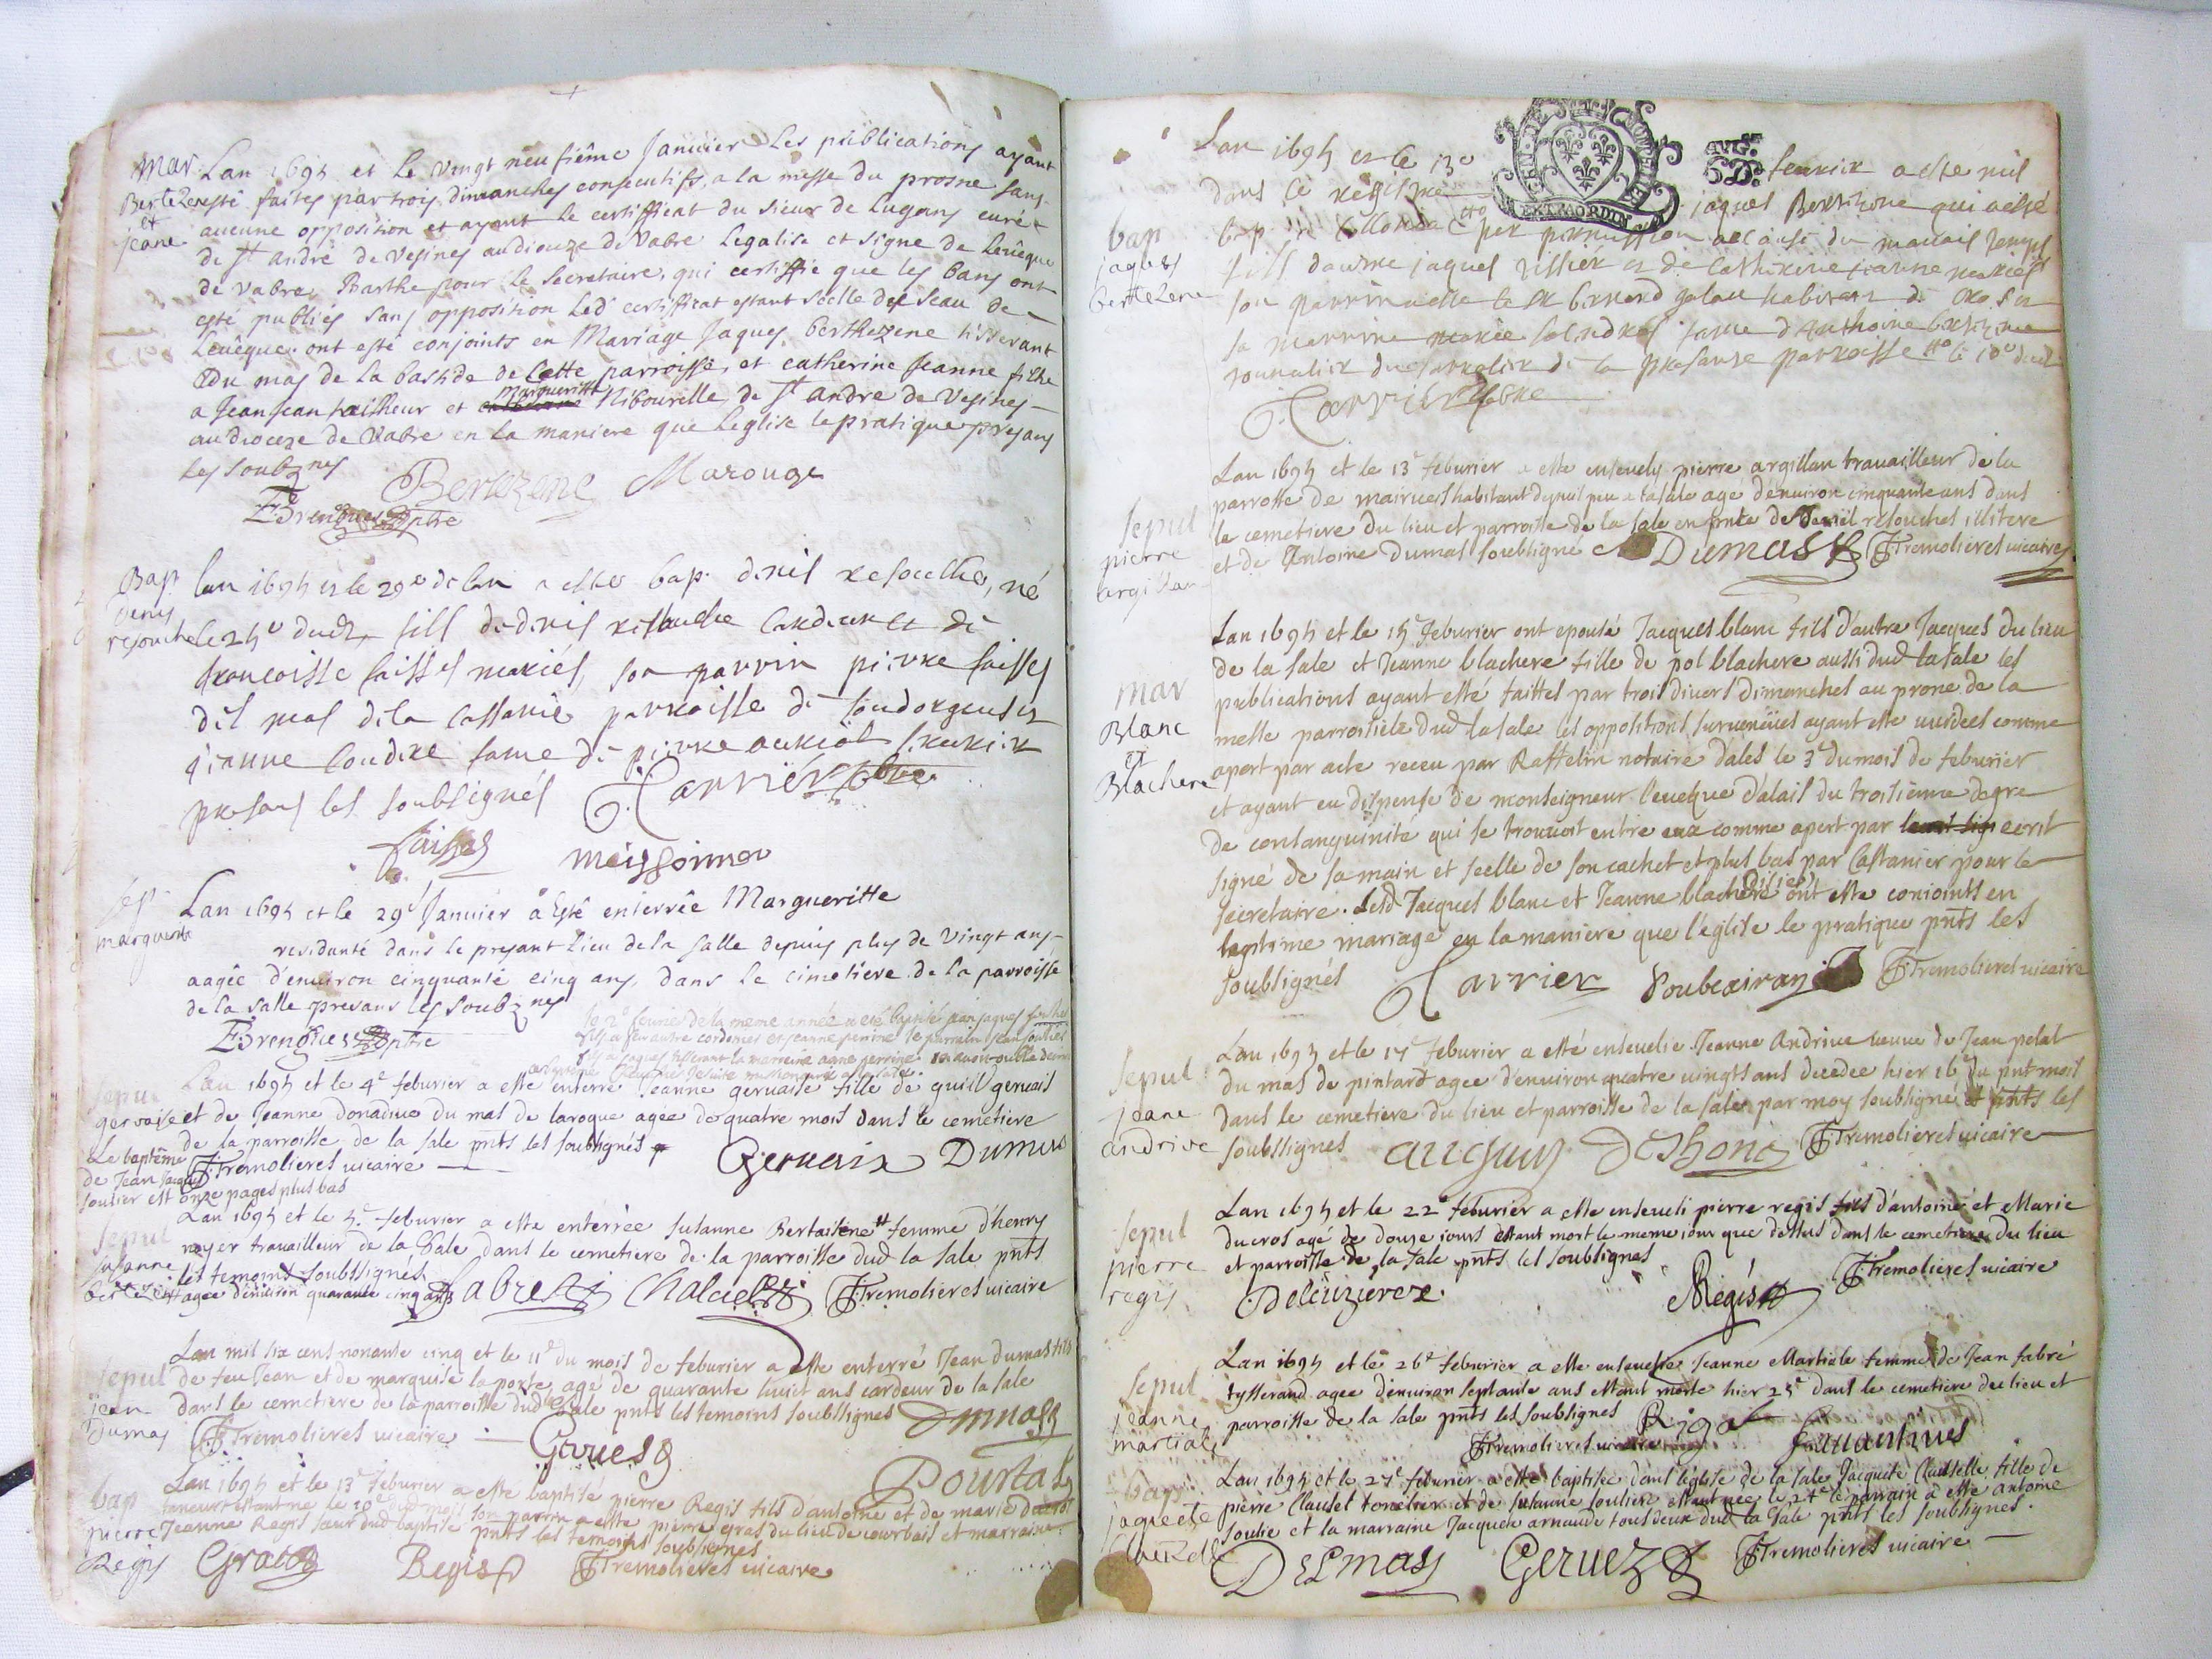 Mar
Bertezene
et
jeane
Lan 1695 et le vingt neufiême Januier Les publications ayant
esté faites par trois dimanches consecutifs, a la messe du prosne sans
aucune opposition et ayant le certifficat du sieur de Lugans curé
de St andré de Vesines au dioceze de Vabre Legalise et signe de Leuêque
de vabre, Barthe pour le secretaire, qui certiffie que les bans ont
esté publiés sans opposition Led certifficat estant séelle du seau de
Leuêque. ont esté conjoints en Mariage Jaques berthezene tisserant
du mas de la bastide de Cette parroisse, et catherine Jeanne filhe
a Jean Jean tailheur et margueritte Nibourelle de St andre de Vesines
au dioceze de Vabre en la maniere que Leglise le pratique presans
les soubz nes
Bertezene Marouge
Brengues ptre
Bap
denis
resouche
lan 1695 et le 29e de lan a este bap. denis resouche, né
le 25e dud, fils de denis resouche cardeur et de
francoisse faisses mariés, son parrin pierre faisses
del mas de la cassanie parroisse de soudorgues et
jeanne coudere fame de pierre
presans les soubsignés Carrier
faisses meissonnier
sep
marguerite
Lan 1695 et le 29e Januier a Esté enterrée Margueritte
residanté dans le presant Lieu de la salle depuis plus de vingt ans
aagée d'enuiron cinquanté cinq ans, dans le cimetiere de la parroisse
de la salle presans les soubz nes
Brengues ptre
le 2e feurier de la meme année a été baptisé jean jaques soulier
fils a autre cordonier et jeanne perrine le parrain jean soulier
fils a jaques tisserant la marreine anne perrine
sepu
gervaise
Lan 1695 et le 4e feburier a esté enterré Jeanne gervaise fille de guill gervais
et de Jeanne Donadiue du mas de laroque agee de quatre mois dans le cemetiere
de la parroisse de la sale pnts les soubsignés
Le baptême
de Jean Jacques
soulier est onze pages plus bas
JTremolieres uicaire Gervaix Dumas
sepul
susanne
bertezene
Lan 1695 et le 5e feburier a este enterrée susanne Bertaisene femme d'henry
noyer trauailleur de la sale dans le cemetiere de la parroisse dud la sale pnts
les temoins soubssignés
agee d'enuiron quarante cinq ans fabre Chalciel JTremolieres uicaire
sepul
jean
Dumas
Lan mil six cens nonante cinq et le 11e du mois de feburier a este enterré Jean dumas fils
de feu Jean et de marquise laporte, agé de quarante huict ans cardeur de la sale
dans le cemetiere de la parroisse dud sale pnts les temoins soubssignés Dumas
JTremolieres uicaire Gerues
bap
pierre
Regis
Lan 1695 et le 13e feburier a este baptisé pierre Regis fils d'antoine et de marie ducros
taneur estant ne le 10e dud mois son parrin a este pierre gras du lieu de courbais et marraine
Jeanne Regis sœur dud baptisé pnts les temoins soubsignes Pourtal
Gras Regis JTremolieres uicaire
EXTRAORDIN
bap
jaques
bertezene
Lan 1695 et le 13e feurier a este mis
dans le registre jaques Bertezene qui a esté
bap par permission a cause du mauais temps
fils dautre jaques tissier et de Catherine jeanne mariés
son parrin habitant
sa marrine marie fame d'Anthoine bertezene
de la presante parroisse
Carrier
sepul
pierre
argillan
Lan 1695 et le 13e feburier a este enseuely pierre argillan trauailleur de la
parroisse de mairueis habitant depuis peu a lasale agé d'enuiron cinquante ans dans
le cemetiere du lieu et parroisse de la sale en pnte de Daniel resouches illitere
et de Antoine dumas soubsigne Dumas JTremolieres uicaire
mar
Blanc
et
Blachere
Lan 1695 et le 15e feburier ont epousé Jacques blanc fils d'autre Jacques du lieu
de la sale et Jeanne blachere fille de pol blachere aussi dud la sale les
publications ayant esté faittes par trois diuers dimanches au prone de la
messe parroissiele dud la sale les oppositions suruenües ayant este uuidees comme
apert par acte receu par Raffelin notaire d'ales le 3e du mois de feburier
et ayant eu dispense de monseigneur l'eueque d'alais du troisieme degre
de consanguinité qui se trouuoit entre eux comme apert par ecrit
signé de sa main et scelle de son cachet et plus bas par Castanier pour le
secretaire. Lesd Jacques blanc et Jeanne blachere ont este conioints en
legitime mariage en la maniere que l'eglise le pratique pnts les
soubsignés Carrier Soubeiran JTremolieres uicaire
sepul
jeane
andrive
Lan 1695 et le 17e feburier a esté enseuelie Jeanne Andriue ueuue de Jean pelat
du mas de pintard agee d'enuiron quatre uingts ans decedee hier 16e du pnt mois
dans le cemetiere du lieu et parroisse de la sale par moy soubsigné et pnts les
soubssignes Deshons JTremolieres uicaire
sepul
pierre
regis
Lan 1695 et le 22e feburier a este enseueli pierre regis fils d'antoine et Marie
ducros agé de douze iours estant mort le meme iour que dessus dans le cemetiere du lieu
et parroisse de la sale pnts les soubsignes
Deleuziere Regis JTremolieres uicaire
sepul
jeanne
martiale
Lan 1695 et le 26e feburier a este enseuelie Jeanne Martiale femme de Jean fabré
tysserand agee d'enuiron septante ans estant morte hier 25e dans le cemetiere du lieu et
parroisse de la sale pnts les soubsignes Rigal
JTremolieres uicaire
bap
jaquete
Lan 1695 et le 27e feburier a este baptisee dans l'eglise de la sale Jaquete Clauselle fille de
pierre Clausel tonelier et de susanne souliere estant nee le 24e le parrain a este antoine
soulie et la marraine Jacquete arnaude tous deux dud la sale pnts les soubsignes.
DELmas Geruez JTremolieres uicaire